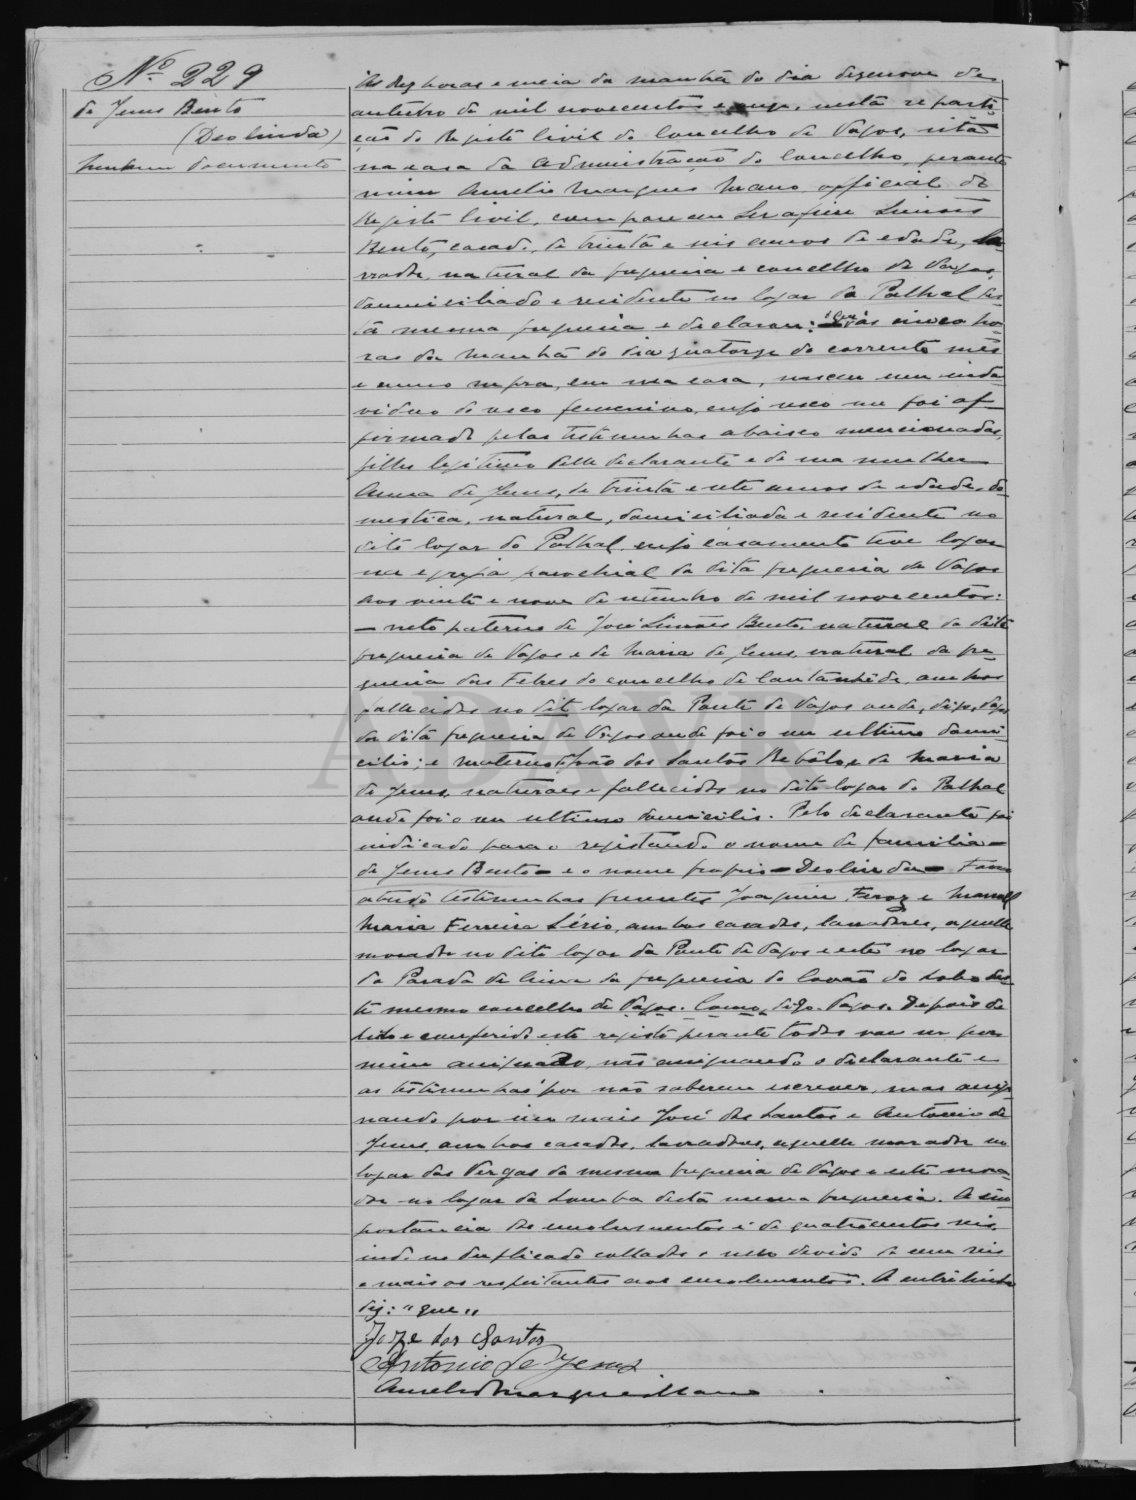 Nº 229
de Jesus Bento
(Deolinda)
Nenhum documento
Ás dez horas e meia da manhã do dia dezenove de
outubro de mil novecentos e onze, nesta reparti-
ção do Registo Civil do Concelho de Vagos, sita
na casa da Administração do Concelho, perante
mim Aurelio Marques Mano, official do
Registo Civil, compareceu Serafim Simões
Bento, casado, de trinta e seis annos de edade, la-
vrador, natural da freguesia e concelho de Vagos,
domiciliado e residente no logar do Palhal des-
ta mesma freguesia e declarou: "que" ás cinco ho-
ras da manhã do dia quatorze do corrente mês
e anno supra, em sua casa, nasceu um indi-
viduo do sexo femenino, cujo sexo me foi af-
firmado pelas testimunhas abaixo mencionadas,
filho legitimo delle declarante e de sua mulher
Anna de Jesus, de trinta e sete annos de edade, do-
mestica, natural, domiciliada e residente no
dito logar do Palhal, cujo casamento teve logar
na egreja parochial da dita freguesia de Vagos
aos vinte e nove de setembro de mil novecentos:
— neto paterno de José Simões Bento, natural da dita
freguesia de Vagos e de Maria de Jesus, natural da fre-
guesia das Febres do concelho de Cantanhede, ambos
fallecidos no dito logar da Ponte de Vagos onde, digo, Vagos
da dita freguesia de Vagos onde foi o seu ultimo domi-
cilio; e materno de João dos Santos Rebôlo e de Maria
de Jesus, naturaes e fallecidos no dito logar do Palhal
onde foi o seu ultimo domicilio. Pelo declarante foi
indicado para o registando o nome de familia —
de Jesus Bento — e o nome proprio — Deolinda — Foram
a tudo testimunhas presentes Joaquim Feroz e Manoel
Maria Ferreira Sério, ambos casados, lavradores, aquelle
morador no dito logar da Ponte de Vagos e este no logar
da Parada de Cima da freguesia do Covão do Lobo des-
te mesmo concelho de Vagos. Como, digo. Vagos. Depois de
lido e conferido este registo perante todos vae ser por
mim assignado, não assignando o declarante e
as testimunhas por não saberem escrever, mas assig-
nando por sim mais José dos Santos e Antonio de
Jesus, ambos casados, lavradores, aquelle morador no
logar das Vergas da mesma freguesia de Vagos e este mora-
dor no logar da Lomba desta mesma freguesia. A im-
portancia dos emolumentos é de quatrocentos reis,
indo no duplicado collados o sello devido de cem reis
e mais os respeitantes aos emolumentos. A entrelinha
diz: "que"
Joze dos Santos
Antonio de Jesus
Aurelio Marques Mano
ADAVR